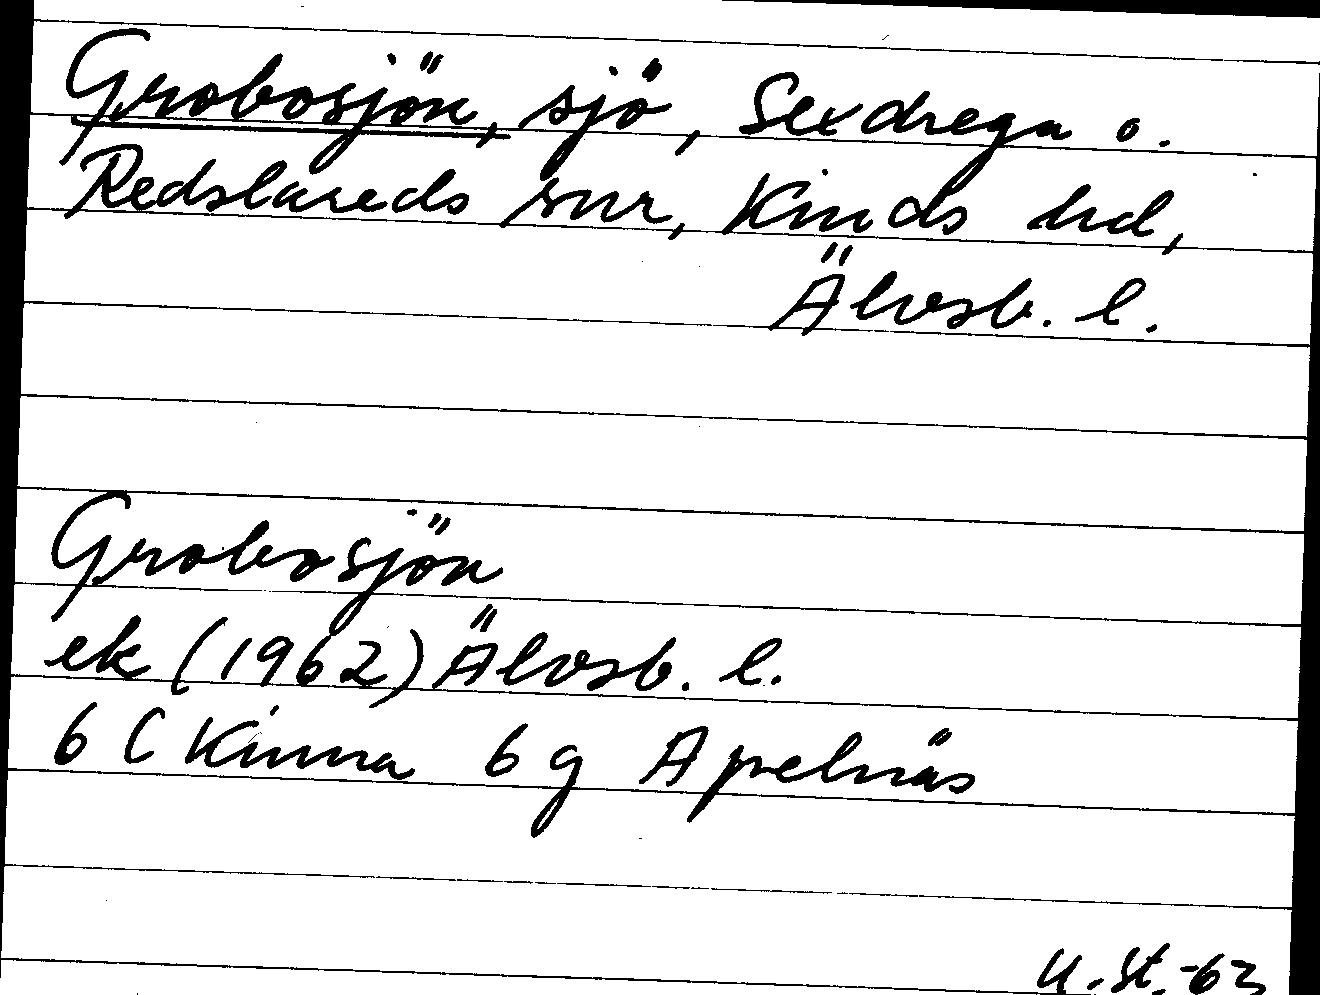 Grobosjön, sjö, Sexdrega o.
Redslareds snr, Kinds hd,
Älvsb. l.
Grobosjön
ek (1962) Älvsb. l.
6 C Kinna 6 g Apelnäs
U. St. -63